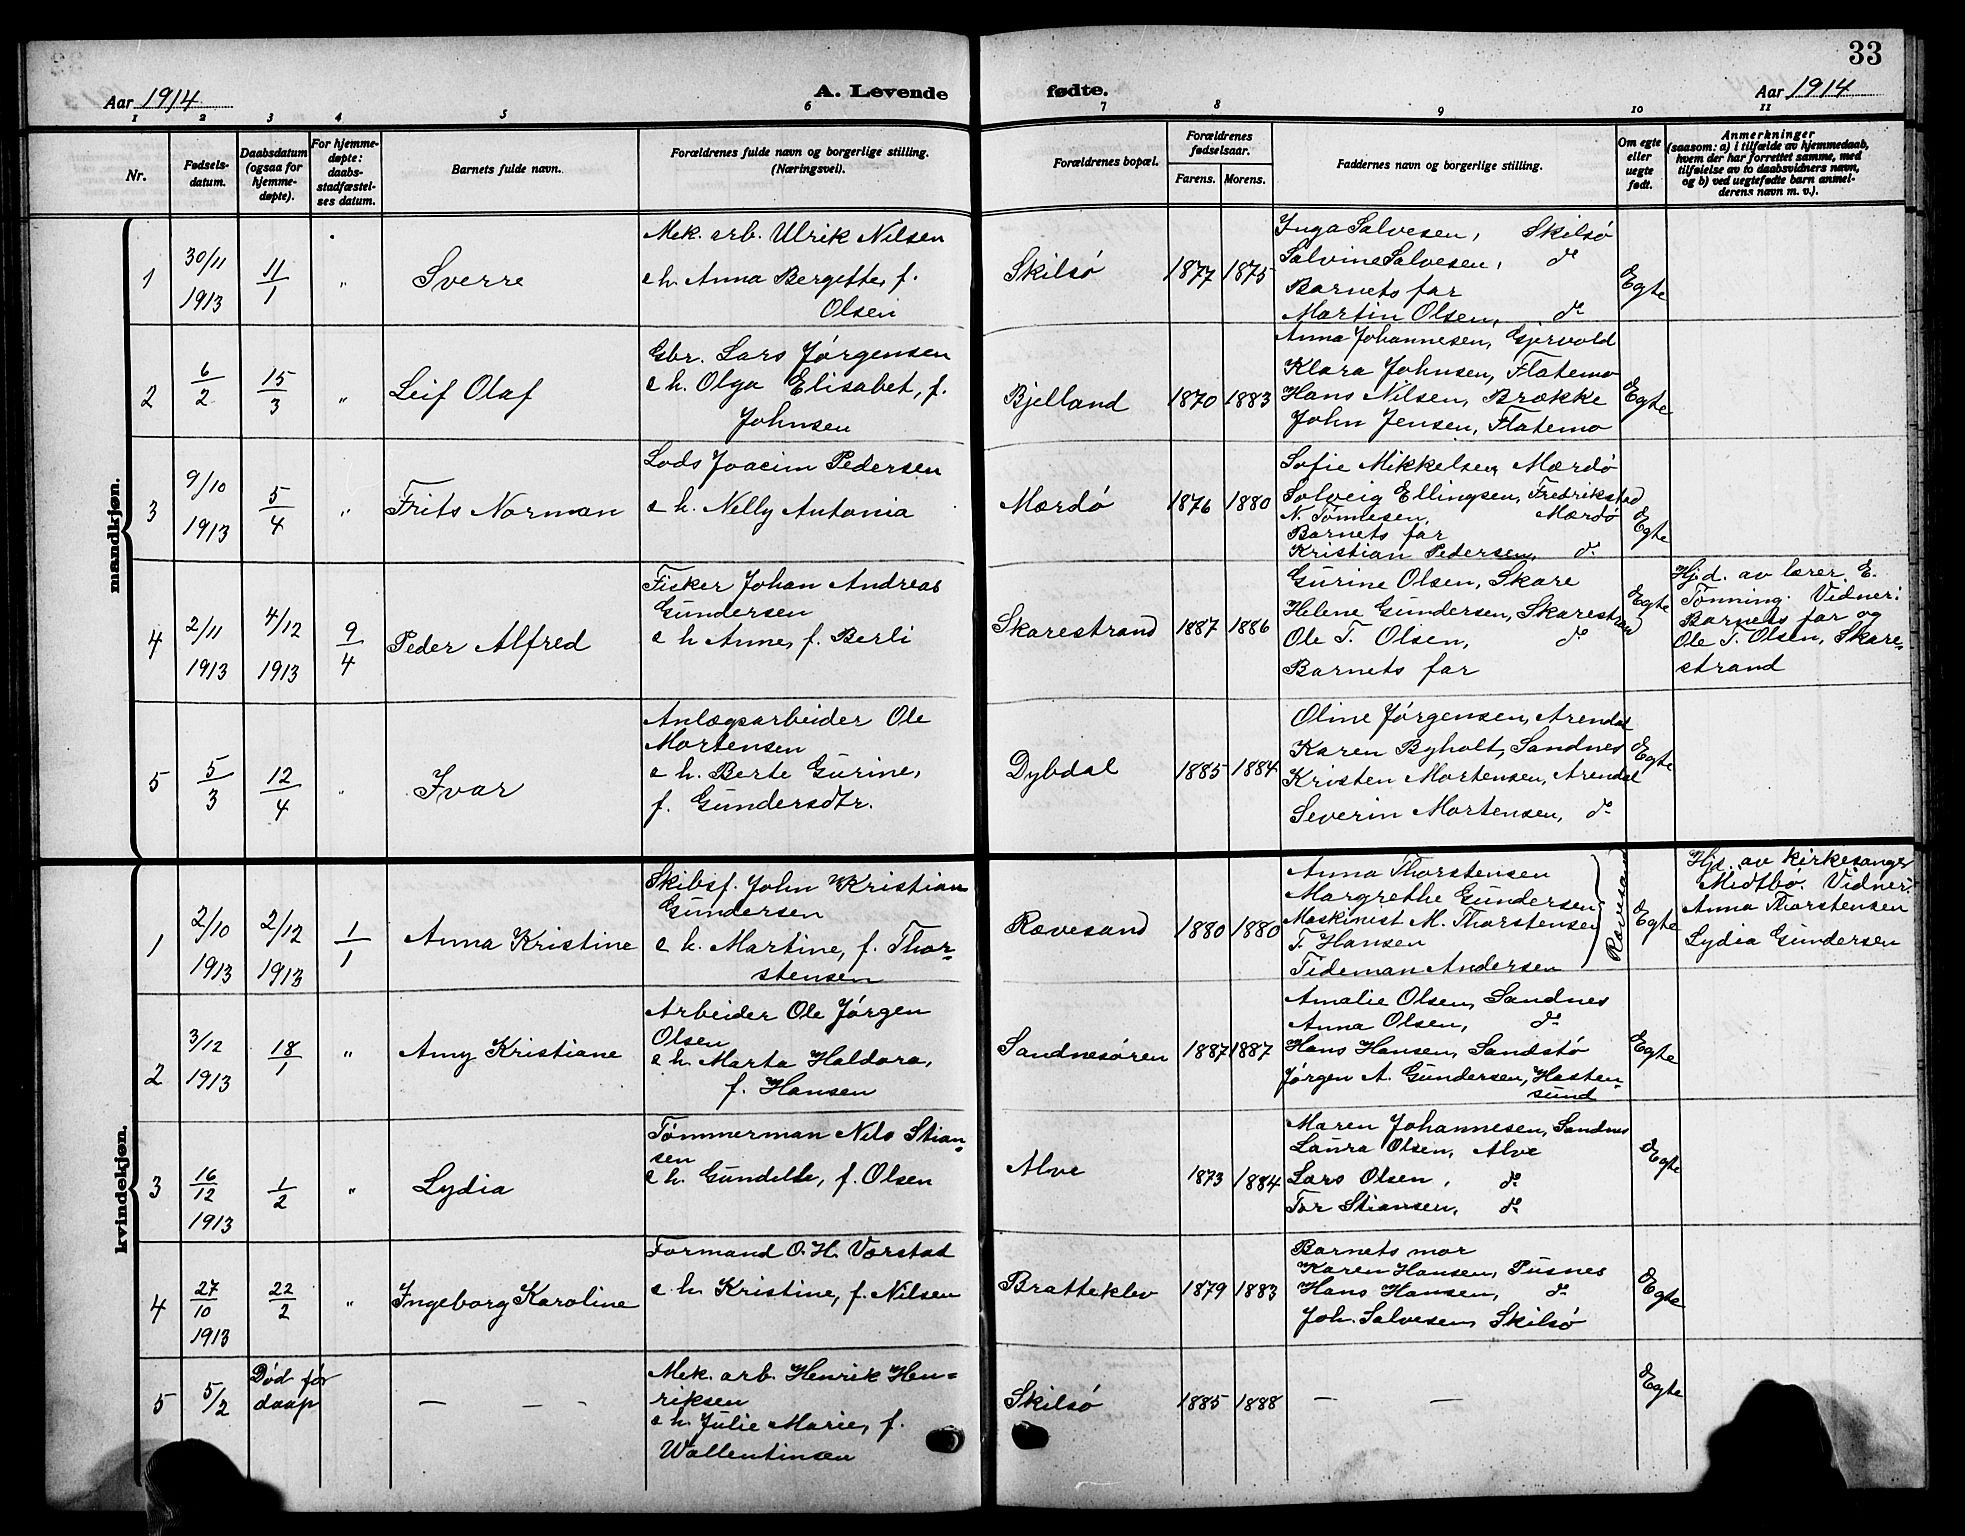 33
Aar 1914
A. Levende fødte.
Aar 1914
1 2 3 4 5 6 7 8 9 10 11
Nr.
Fødsels-
datum.
Daabsdatum
(ogsaa for
hjemme-
døpte).
For hjemme-
døpte:
daabs-
stadfæstel-
ses datum.
Barnets fulde navn.
Forældrenes fulde navn og borgerlige stilling.
(Næringsvei.)
Forældrenes bopæl.
Forældrenes
fødselsaar.
Farens. Morens.
Faddernes navn og borgerlige stilling.
Om egte
eller
uegte
født.
Anmerkninger
(saasom: a) i tilfælde av hjemmedaab,
hvem der har forrettet samme, med
tilføielse av to daabsvidners navn,
og b) ved uegtefødte barn anmel-
derens navn m. v.).
mandkjøn.
1
30/11
1913
11/1
"
Sverre
Mek. arb. Ulrik Nilsen
e h. Anna Bergette, f.
Olsen
Skilsø
1877 1875
Inga Salvesen, Skilsø
Salvine Salvesen, do
Barnets far
Martin Olsen, do
Egte
2
6/2
15/3
"
Leif Olaf
Gbr. Lars Jørgensen
e h. Olga Elisabet, f.
Johnsen
Bjelland
1870 1883
Anna Johannesen, Gjervold
Klara Johnsen, Flatemo
Hans Nilsen, Brække
John Jensen, Flatemo
Egte
3
9/10
1913
5/4
"
Frits Norman
Lods Joacim Pedersen
e h. Nelly Antonia
Mærdø
1876 1880
Sofie Mikkelsen, Mærdø
Solveig Ellingsen, Fredrikstad
N. Tønnesen, Mærdø
Barnets far
Kristian Pedersen, do
Egte
4
2/11
1913
4/12
1913
9/4
Peder Alfred
Fisker Johan Andreas
Gundersen
e h Anne, f. Berli
Skarestrand
1887 1886
Gurine Olsen, Skare
Helene Gundersen, Skarestrand
Ole T. Olsen, do
Barnets far
Egte
Hjd. av lærer E.
Tønning. Vidner:
Barnets far og
Ole T. Olsen, Skare-
strand
5
5/3
12/4
"
Ivar
Anlægsarbeider Ole
Mortensen
e h. Berte Gurine,
f. Gundersdtr.
Dybdal
1885 1884
Oline Jørgensen, Arendal
Karen Byholt, Sandnes
Kristen Mortensen, Arendal
Severin Mortensen, do
Egte
kvindekjøn.
1
2/10
1913
2/12
1913
1/1
Anna Kristine
Skibsf. John Kristian
Gundersen
e h. Martine, f. Thor-
stensen
Rævesand
1880 1880
Anna Thorstensen
Margrethe Gundersen
Maskinist M. Thorstensen
T. Hansen
Tideman Andersen
Rævesand
Egte
Hjd. av kirkesanger
Midtbø. Vidner:
Anna Thorstensen
Lydia Gundersen
2
3/12
1913
18/1
"
Amy Kristiane
Arbeider Ole Jørgen
Olsen
e h. Marta Haldora,
f. Hansen
Sandnesøren
1887 1887
Amalie Olsen, Sandnes
Anna Olsen, do
Hans Hansen, Sandstø
Jørgen A. Gundersen, Hasten-
sund
Egte
3
16/12
1913
1/2
"
Lydia
Tømmerman Nils Stian-
sen
e h. Gundelle, f. Olsen
Alve
1873 1884
Maren Johannesen, Sandnes
Laura Olsen, Alve
Lars Olsen, do
Tor Stiansen, do
Egte
4
27/10
1913
22/2
"
Ingeborg Karoline
Formand O. H. Værstad
e h. Kristine, f. Nilsen
Bratteklev
1879 1883
Barnets mor
Karen Hansen, Pusnes
Hans Hansen, do
Joh. Salvesen, Skilsø
Egte
5
5/2
Død før
daap
— — -
Mek. arb. Henrik Hen-
riksen
e h. Julie Marie, f.
Wallentinsen
Skilsø
1885 1888
— —
Egte